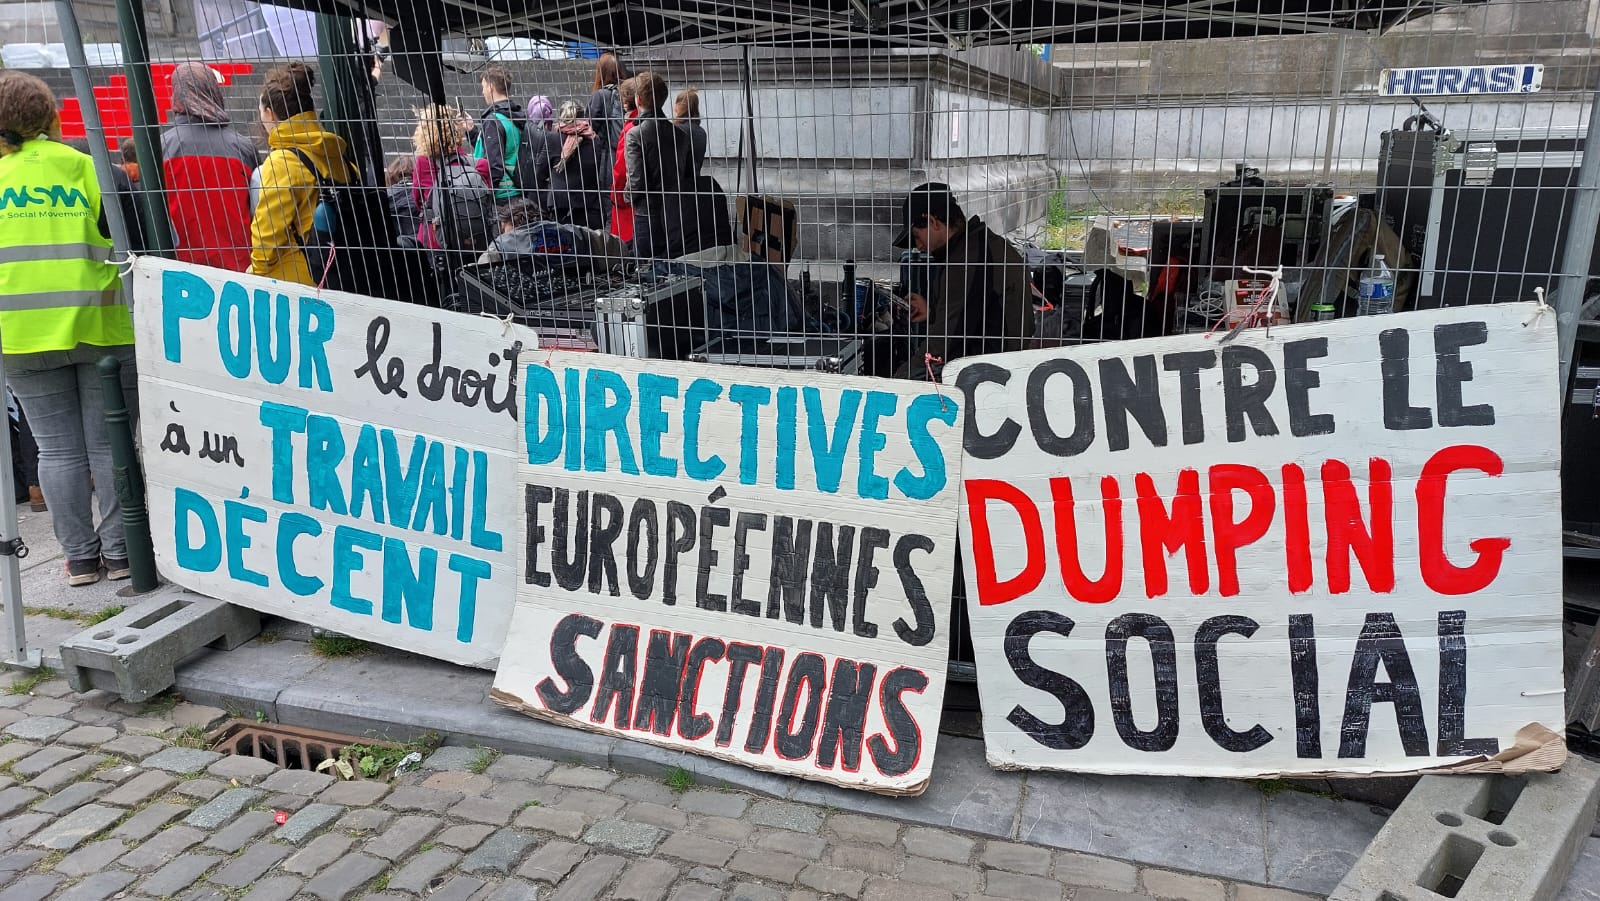 POUR le droit
à un TRAVAIL
DÉCENT
DIRECTIVES
EUROPÉENNES
SANCTIONS
CONTRE LE
DUMPING
SOCIAL
HERAS!
WSM
e Social Movement